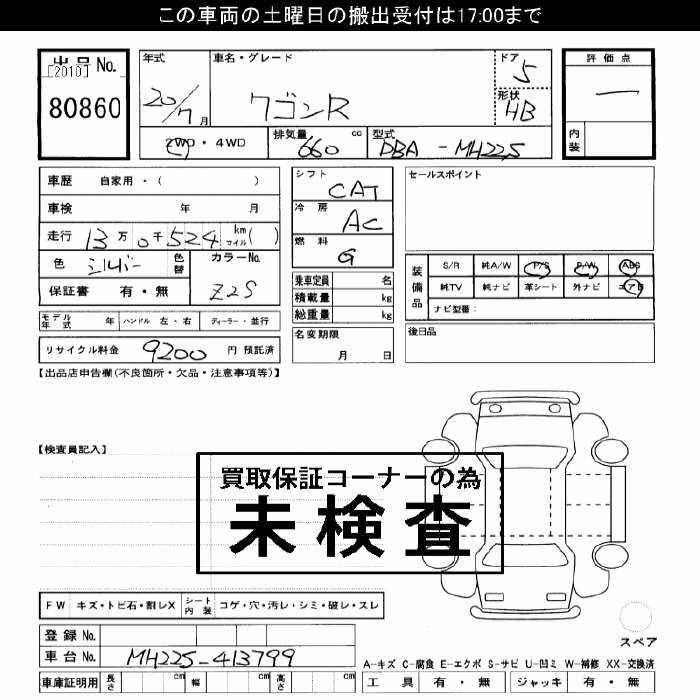 この車両の土曜日の搬出受付は17:00まで
出品 No.
[2010]
80860
年式
20/7 月
車名・グレード
ワゴンR
ドア
5
形状
HB
評価点
—
内装
2WD・4WD
排気量 660 cc
型式 DBA-MH22S
車歴 自家用・( )
車検 年 月
走行 13 万 0 千 524 km マイル ( )
色 シルバー
色替
カラーNo.
Z2S
保証書 有・無
モデル年式 年 ハンドル 左・右 ディーラー・並行
リサイクル料金 9200 円 預託済
シフト CAT
冷房 AC
燃料 G
乗車定員 名
積載量 kg
総重量 kg
名変期限
月 日
セールスポイント
装備品
S/R 純A/W P/S P/W ABS
純TV 純ナビ 革シート 外ナビ エアB
ナビ型番:
後日品
【出品店申告欄(不良箇所・欠品・注意事項等)】
【検査員記入】
買取保証コーナーの為
未検査
FW キズ・トビ石・割レX
シート内装 コゲ・穴・汚レ・シミ・破レ・スレ
登録 No.
車台 No. MH22S-413799
車庫証明用 長さ cm 幅 cm 高さ cm
スペア
A-キズ C-腐食 E-エクボ S-サビ U-凹ミ W-補修 XX-交換済
工具 有・無 ジャッキ 有・無